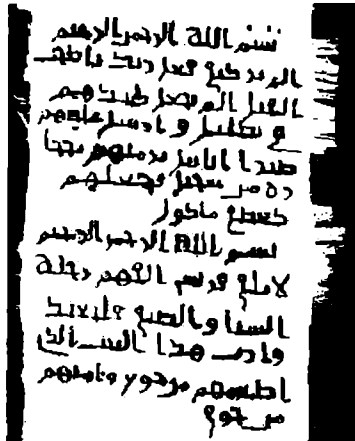 بسم الله الرحمن الرحيم
الم تر كيف فعل ربك باصحب
الفيل الم يجعل كيدهم
في تضليل وارسل عليهم
طيرا ابابيل ترميهم بحجا
رة من سجيل فجعلهم
كعصف ماكول
بسم الله الرحمن الرحيم
لايلف قريش الفهم رحلة
الشتا والصيف فليعبد
وا رب هذا البيت الذي
اطعمهم من جوع وامنهم
من خوف